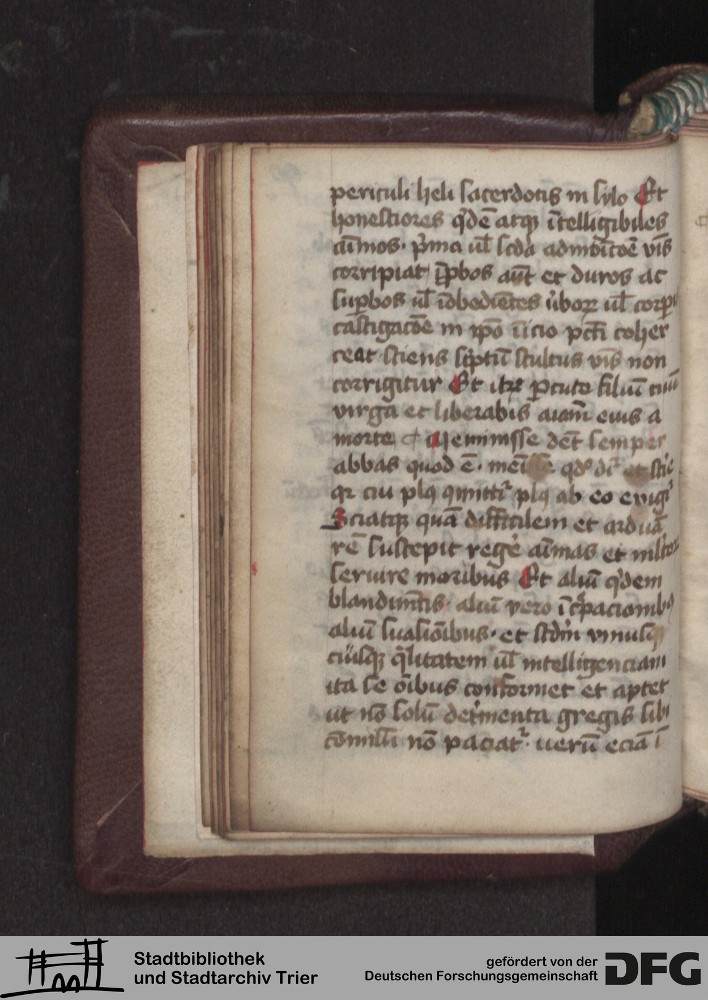 periculi heli sacerdotis in sylo Et
honestiores q̇dē atqꝫ ītelligibiles
aīmos · pͥma uł scďa admōicōe v̄bis
corripiat īpͥbos aūt et duros ac
supbos uł īobediētes ṽboꝝ uł corpͥ
castigacōe in ipͦo īicio pctͥ coher
ceat sciens scͥptū stultus v̄bis non
corrigitur Et itꝫ pcute filiū tuū
virga et liberabis aīam eius a
morte Meminisse dēt semper
abbas quod ē · meīsse qďˢ dͬ et scīe
qꝛ cui plꝰ cōmittiͬ plꝰ ab eo exigiͬ
Sciatqꝫ quā difficilem et arduā
rē suscepit regē aīmas et mltoꝝ
seruire moribus Et aliū qͥdem
blandimētis · aliū vero īcͤpaciōnibꝰ
aliū suasiōibus · et scďm vniusͨ
cuiusqꝫ qͣlitatem uł intelligenciam
ita se oībus conformet et aptet
ut nō solū detͥmenta gregis sibi
cōmissi nō paciatͬ · uerū eciā ī
Stadtbibliothek
und Stadtarchiv Trier
gefördert von der
Deutschen Forschungsgemeinschaft
DFG